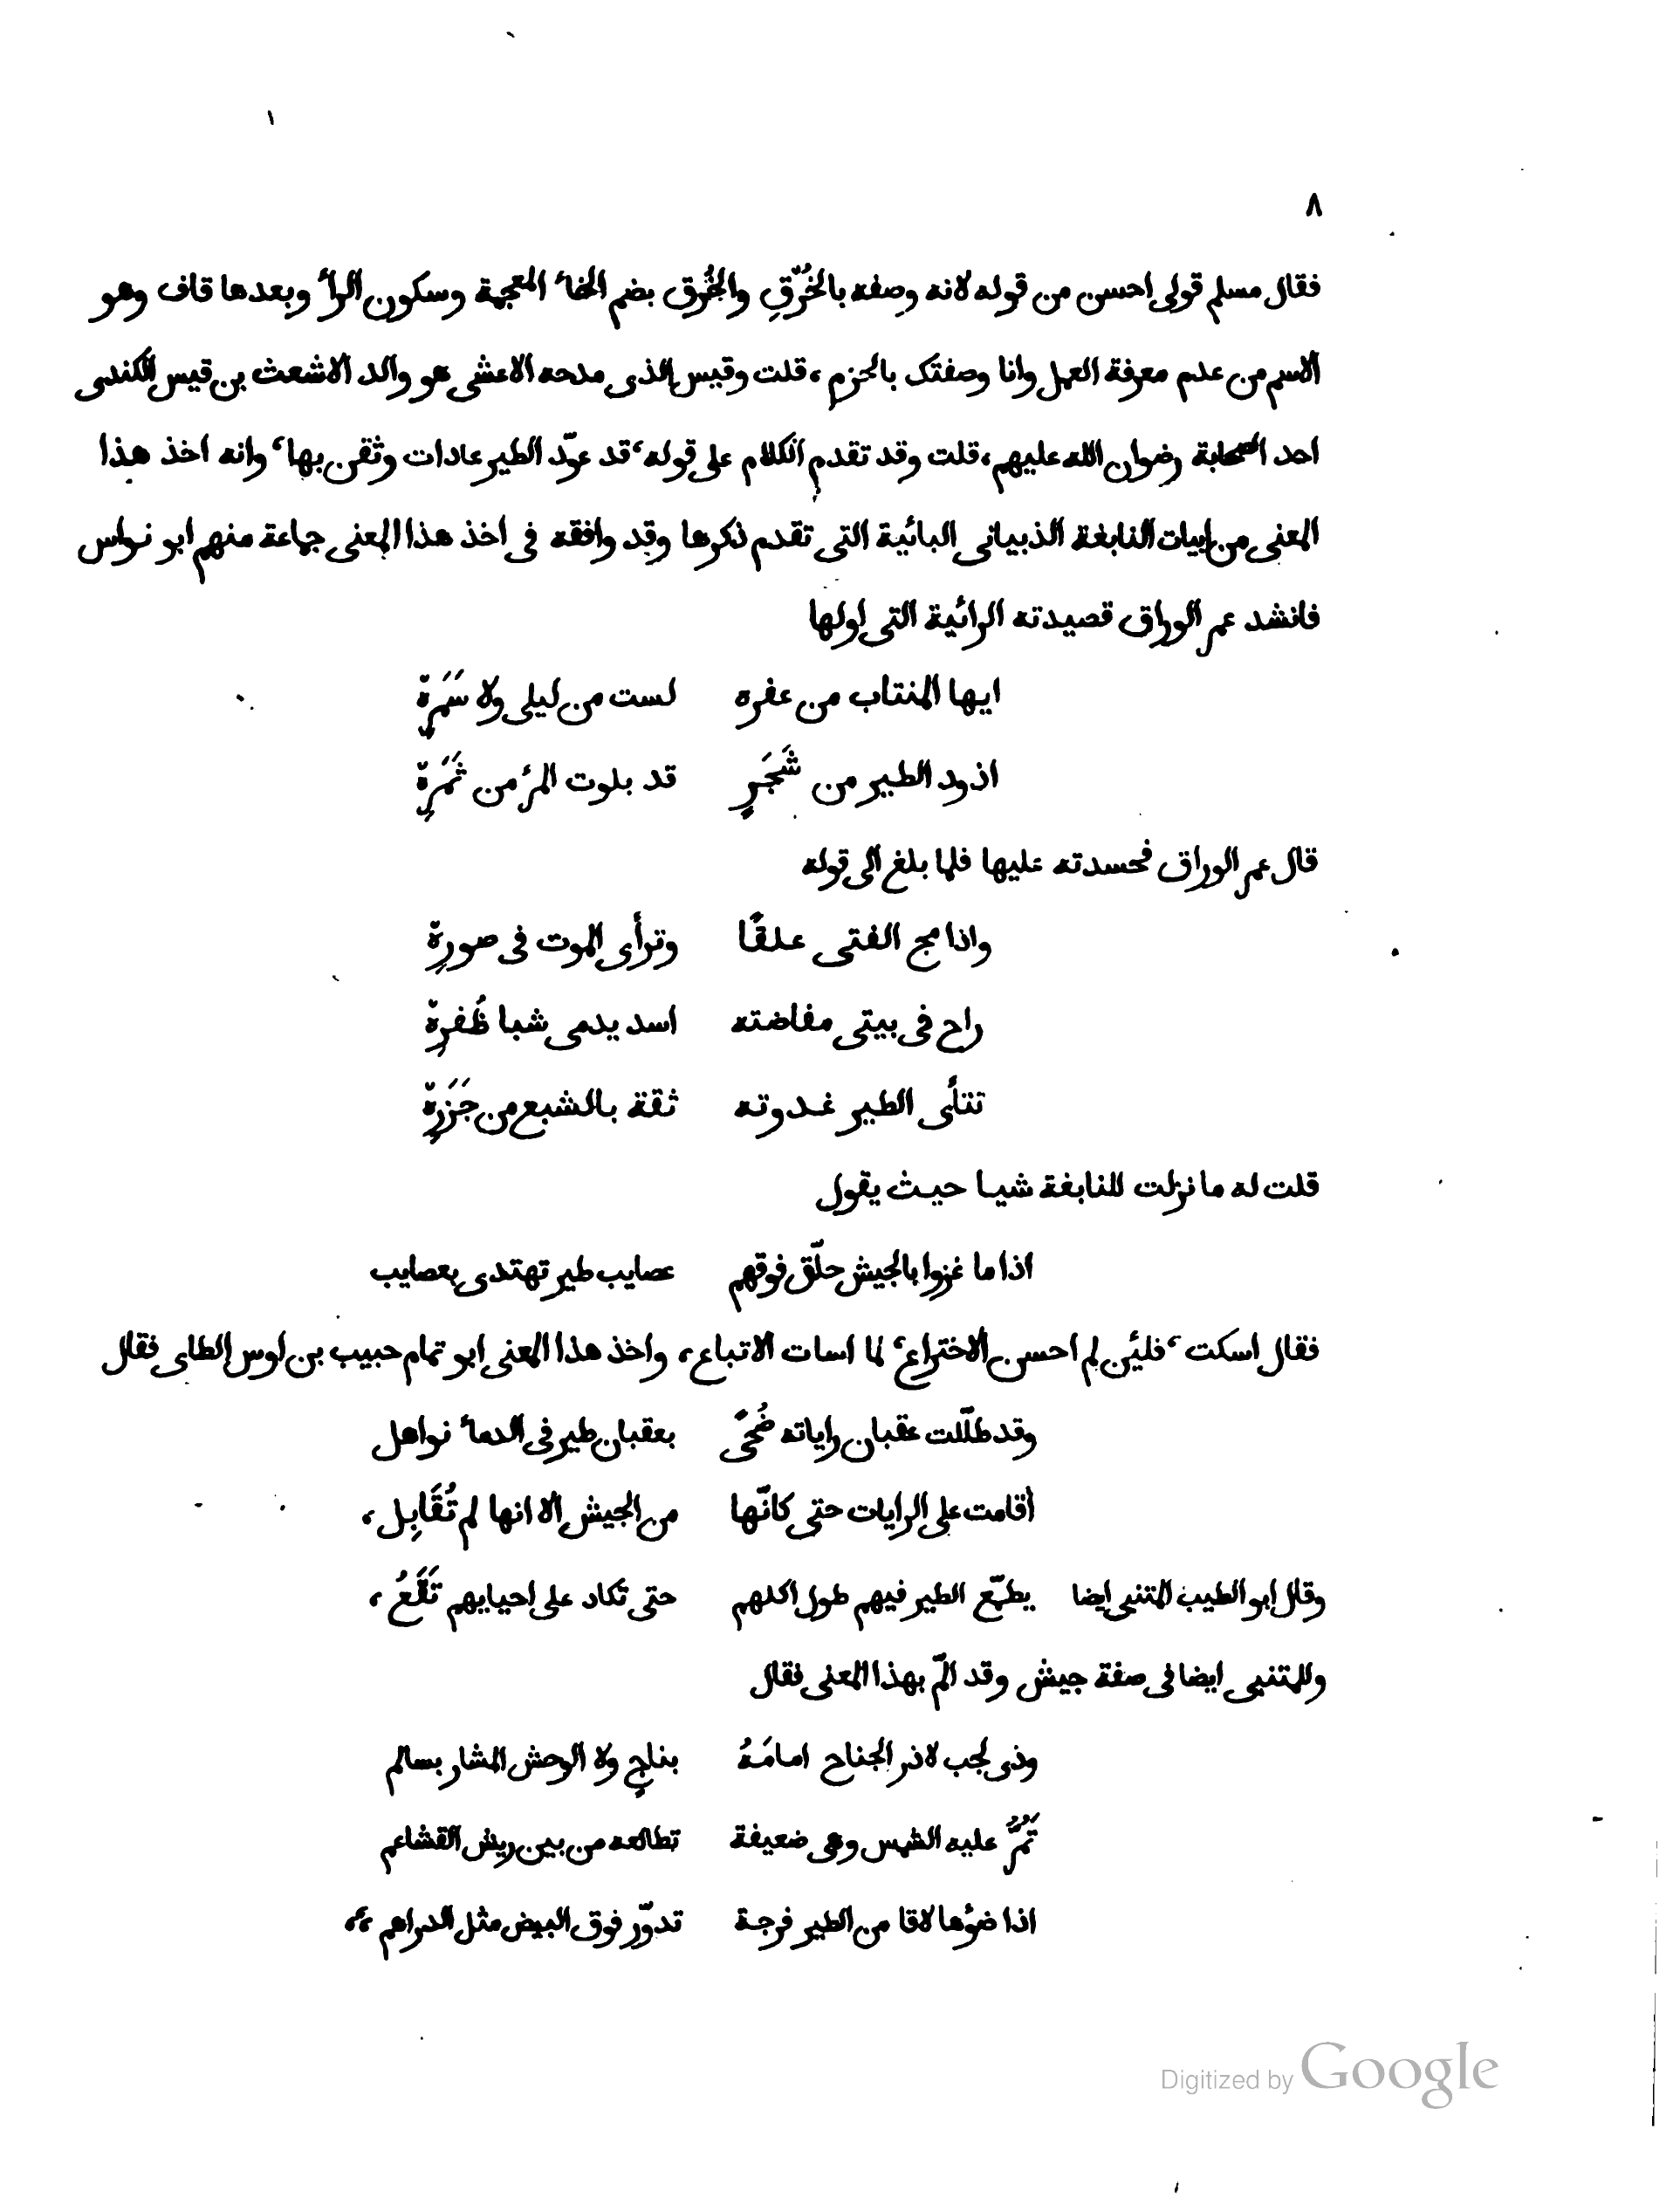 ٨
فقال مسلم قولى احسن من قوله لانه وصفه بالخُرْقِ والخُرق بضم الخاء المعجمة وسكون الراء وبعدها قاف وهو
الاسم من عدم معرفة العمل وانا وصفتك بالحزم، قلت وقيس الذى مدحه الاعشى هو والد الاشعث بن قيس الكندى
احد الصحابة رضوان الله عليهم، قلت وقد تقدم الكلام على قوله، قد عوّد الطير عادات وثقن بها، وانه اخذ هذا
المعنى من ابيات النابغة الذبيانى البائية التى تقدم ذكرها وقد وافقه فى اخذ هذا المعنى جماعة منهم ابو نواس
فانشد عمر الوراق قصيدته الرائية التى اولها
ايها المنتاب من عفره لست من ليلى ولا سَمَرِهْ
اذود الطير من شَجَرٍ قد بلوت المرّ من ثَمَرِهْ
قال عمر الوراق فحسدته عليها فلما بلغ الى قوله
واذا مج الفتى علقًا وترأى الموت فى صورِهْ
راح فى بيتى مفاضته اسد يدمى شبا ظُفرِهْ
تتأى الطير غدوته ثقة بالشبع من جَزَرِهْ
قلت له ما نزلت للنابغة شيا حيث يقول
اذا ما غزوا بالجيش حلّق فوقهم عصايب طير تهتدى بعصايب
فقال اسكت، فلئن لم احسن الاختراع، لما اسات الاتباع، واخذ هذا المعنى ابو تمام حبيب بن اوس الطاى فقال
وقد ظلّلت عقبان راياته ضُحًى بعقبان طير فى الدماء نواهل
أقامت على الرايات حتى كانّها من الجيش الا انها لم تُقَابِل،
وقال ابو الطيب المتنبى ايضا يطمّع الطير فيهم طول اكلهم حتى تكاد على احيايهم تَقَعُ،
وللمتنبى ايضا فى صفة جيش وقد المّ بهذا المعنى فقال
وذى لجب لا ذر الجناح امامَهُ بناجٍ ولا الوحش المثار بسالم
تَمُرُّ عليه الشمس وهى ضعيفة تطالعه من بين ريش القشاعم
اذا ضوُها لاقا من الطير فرجة تدوّر فوق البيض مثل الدراهم،،
Digitized by Google